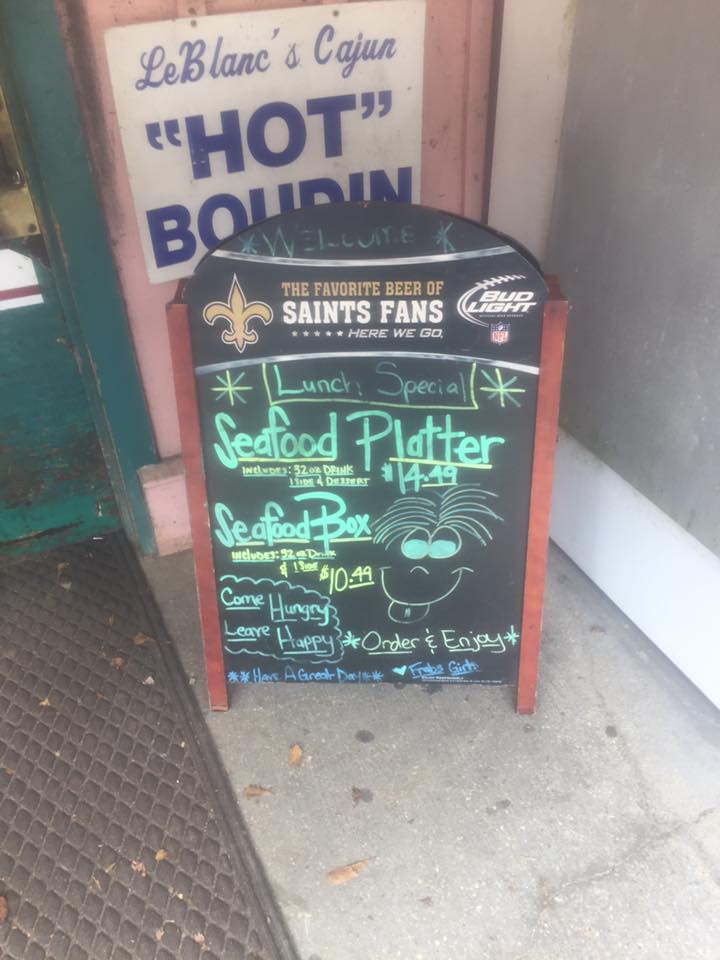 LeBlanc's Cajun
"HOT"
BOUDIN
*WELCOME*
THE FAVORITE BEER OF
SAINTS FANS
HERE WE GO.
BUD
LIGHT
NFL
*Lunch Special*
Seafood Platter
INCLUDES: 32 oz DRINK
1 SIDE & DESSERT
$14.49
Seafood Box
INCLUDES: 32 oz Drink
& 1 SIDE $10.49
Come Hungry
Leave Happy
*Order & Enjoy*
**Have A Great Day**
Girls